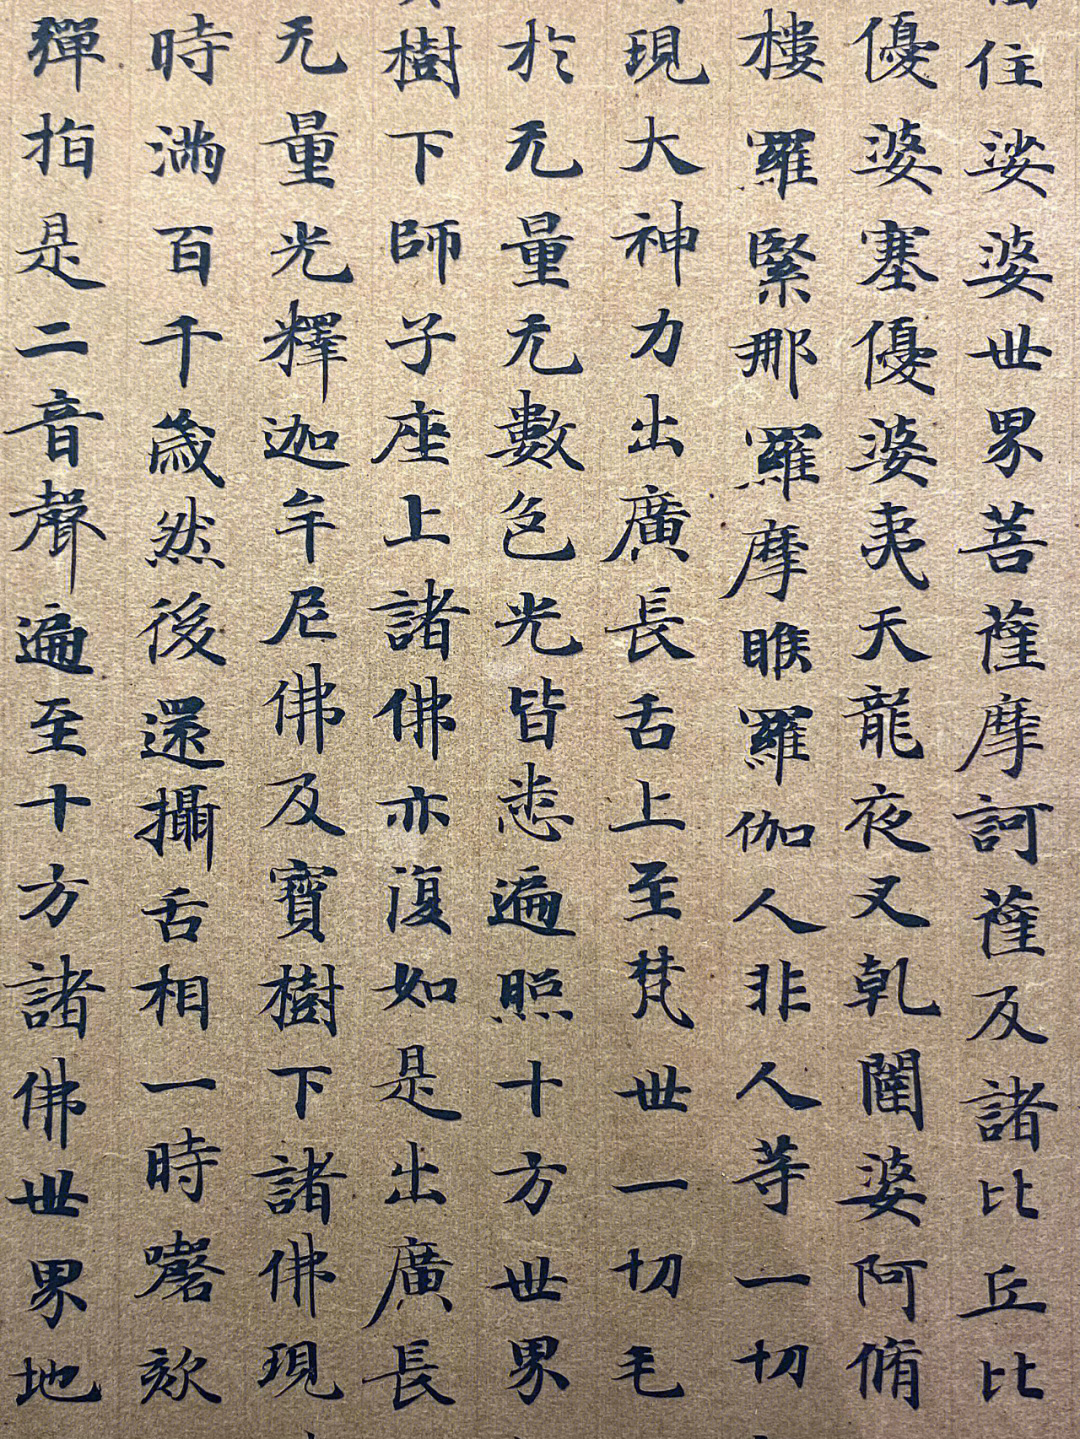 住娑婆世界菩薩摩訶薩及諸比丘比
優婆塞優婆夷天龍夜叉乾闥婆阿脩
樓羅緊那羅摩睺羅伽人非人等一切
現大神力出廣長舌上至梵世一切毛
於无量无數色光皆悉遍照十方世界
樹下師子座上諸佛亦復如是出廣長
无量光釋迦牟尼佛及寶樹下諸佛現
時滿百千歲然後還攝舌相一時謦欬
彈指是二音聲遍至十方諸佛世界地